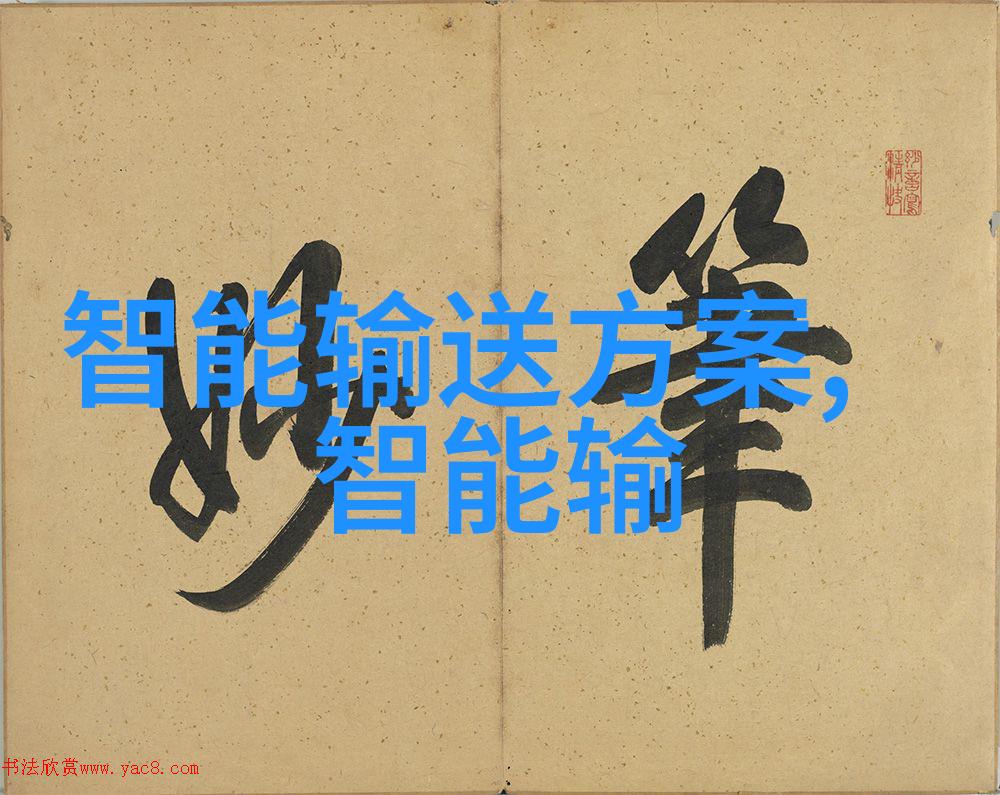 智能输送方案,
智能输
筆
妙
书法欣赏www.yac8.com